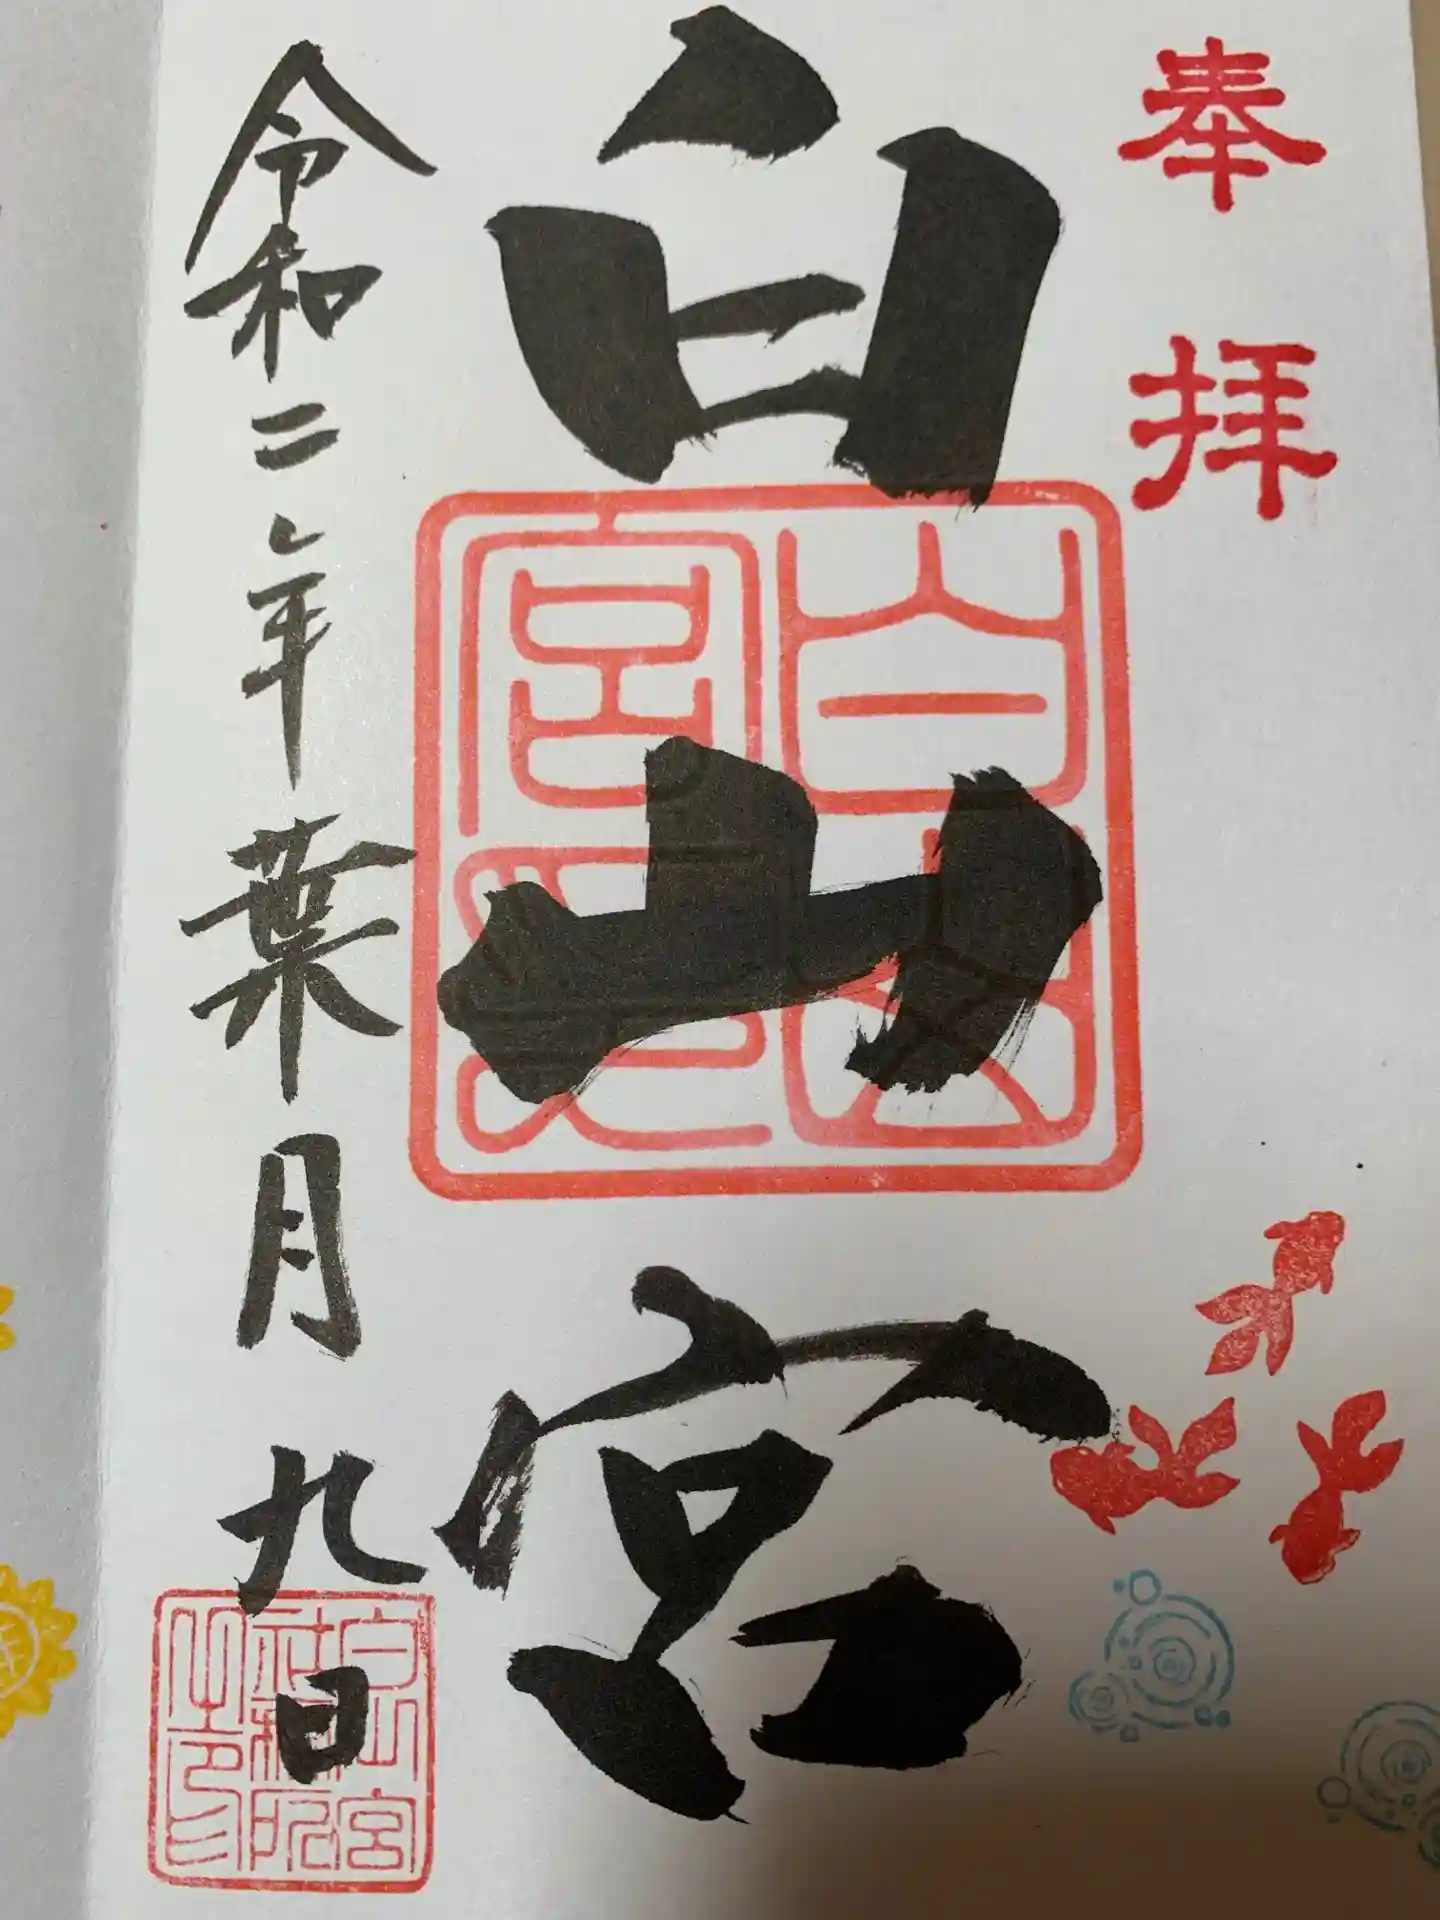 奉拝
白山宮
白山宮印
令和二年葉月九日
白山宮
社務所
之印